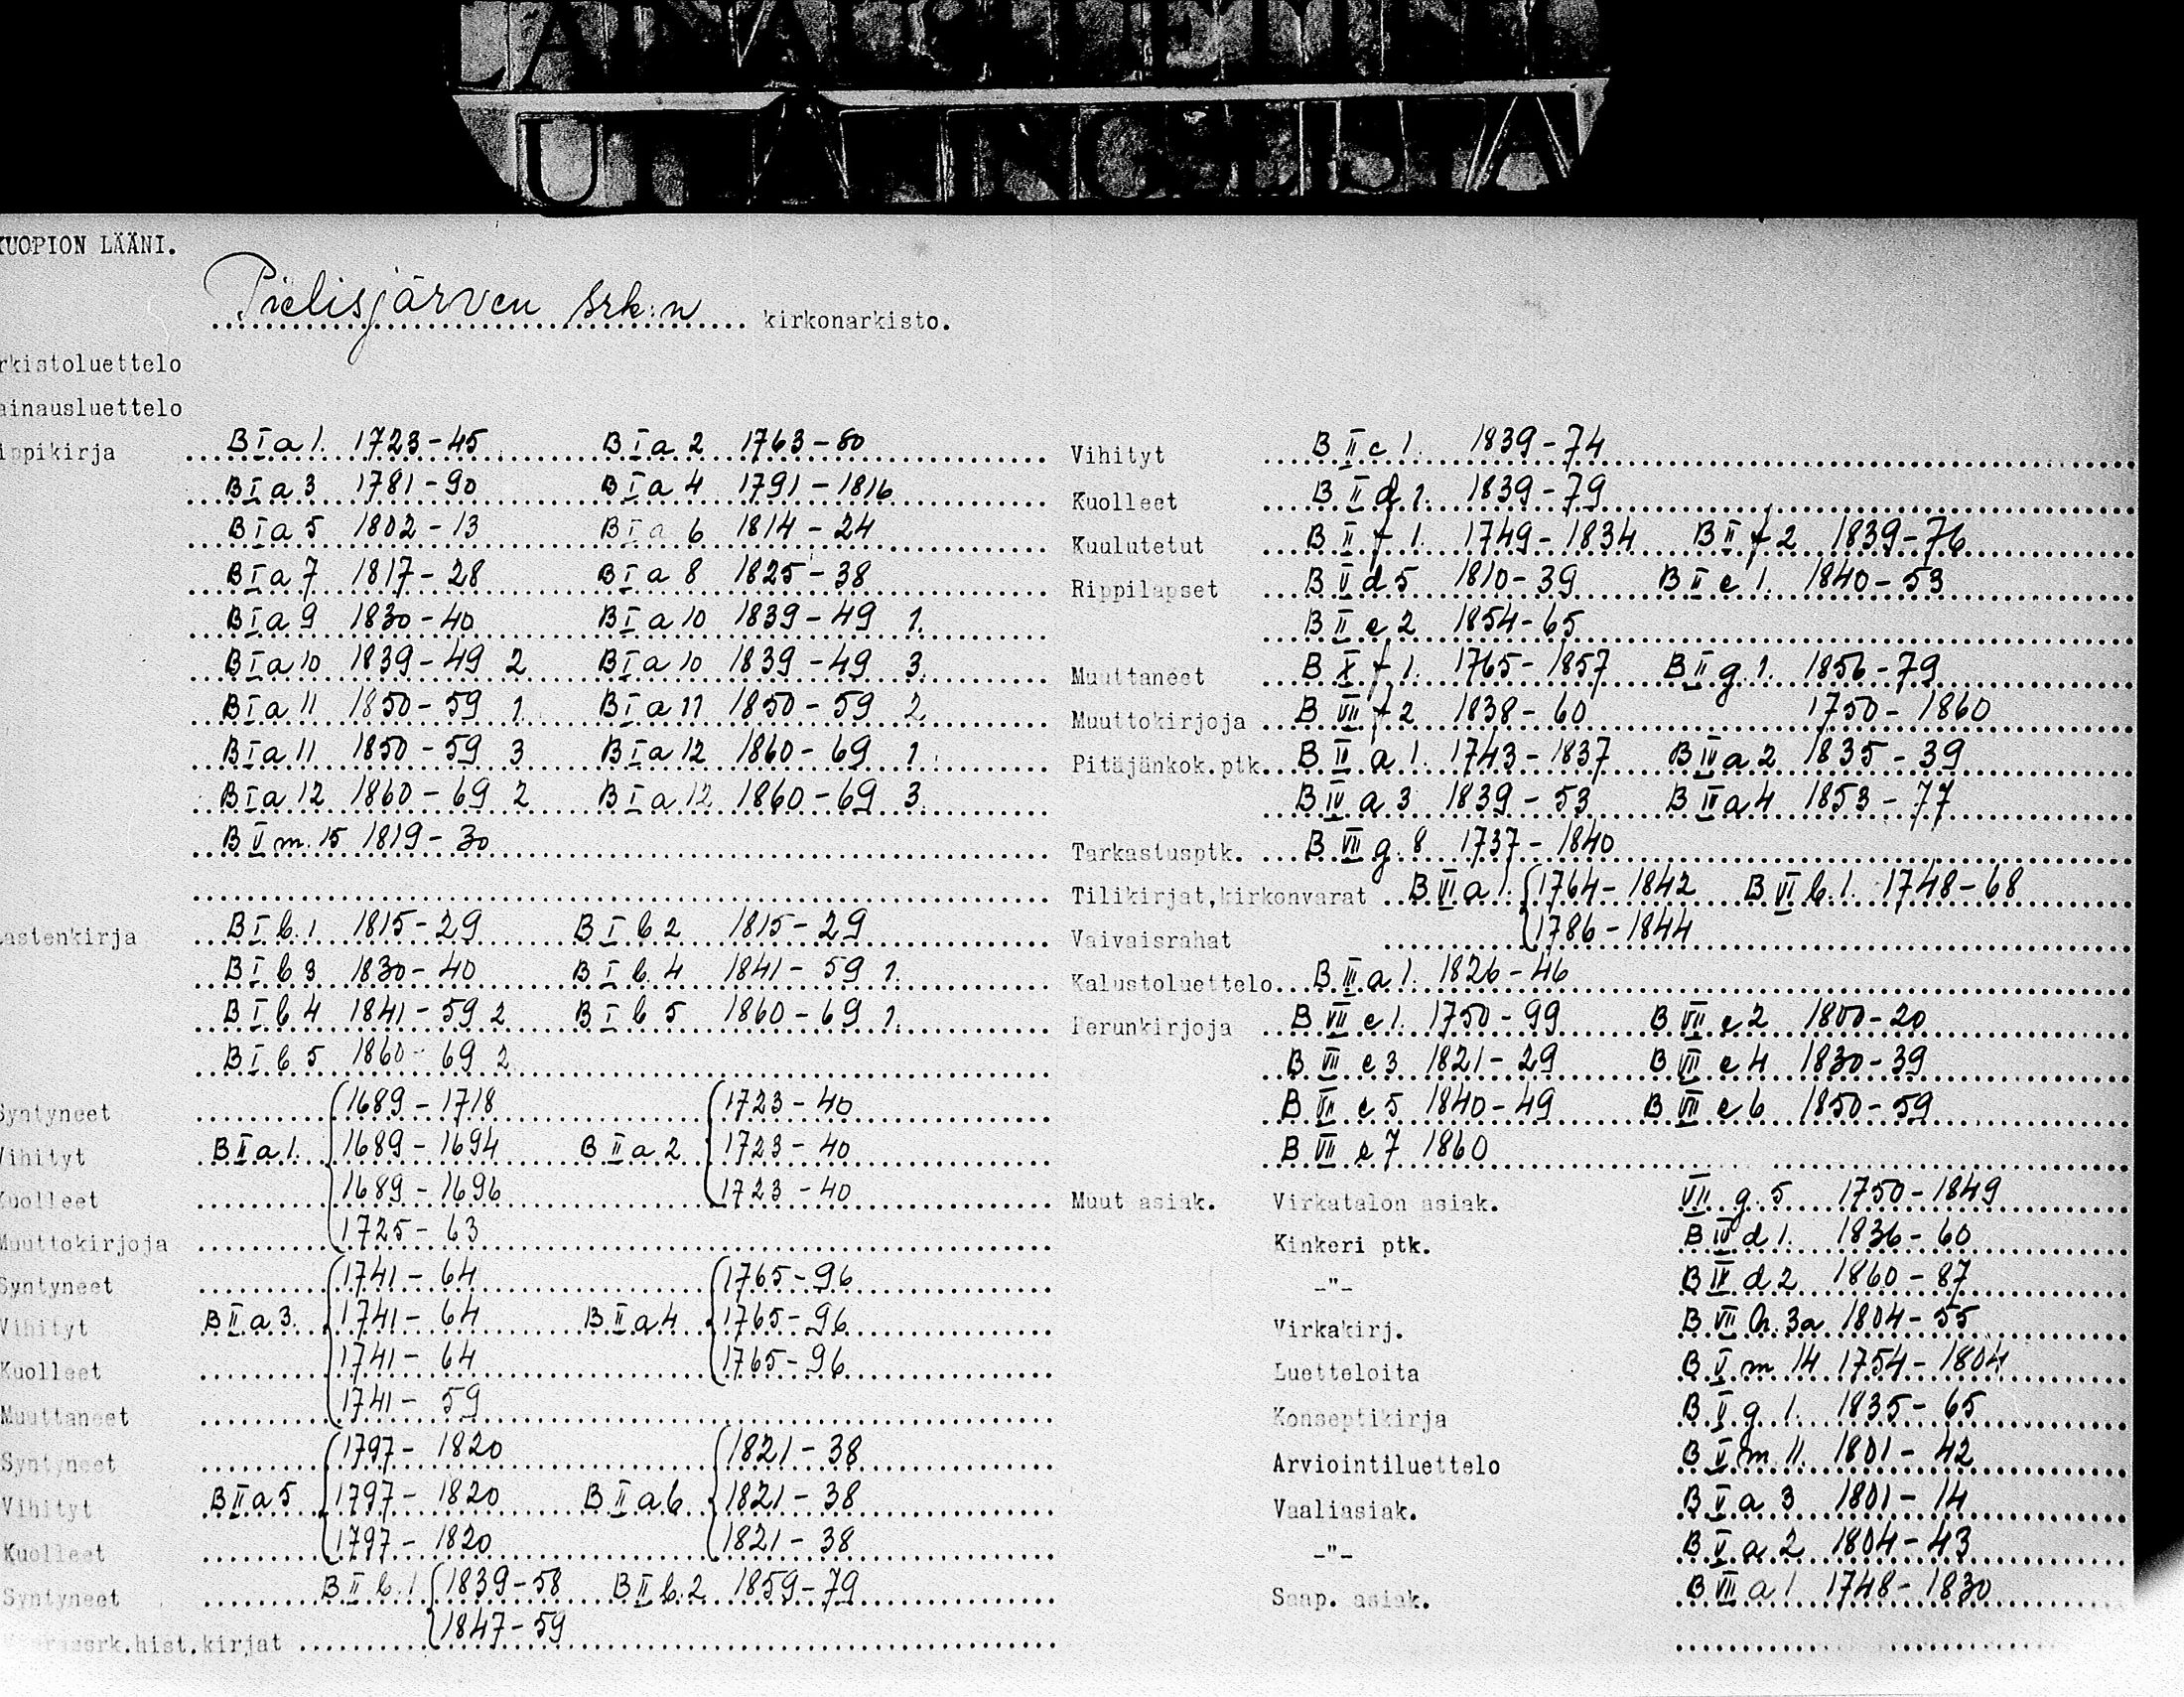 KUOPION LÄÄNI.
Pielisjärven srk:n kirkonarkisto.
rkistoluettelo
ainausluettelo
ippikirja B I a 1. 1723-45 B I a 2 1763-80
B I a 3 1781-90 B I a 4 1791-1816
B I a 5 1802-13 B I a 6 1814-24
B I a 7 1817-28 B I a 8 1825-38
B I a 9 1830-40 B I a 10 1839-49 1.
B I a 10 1839-49 2 B I a 10 1839-49 3.
B I a 11 1850-59 1. B I a 11 1850-59 2.
B I a 11 1850-59 3 B I a 12 1860-69 1.
B I a 12 1860-69 2 B I a 12 1860-69 3.
B V m. 15 1819-30
astenkirja B I b. 1 1815-29 B I b 2 1815-29
B I b 3 1830-40 B I b. 4 1841-59 1.
B I b 4 1841-59 2 B I b 5 1860-69 1.
B I b 5 1860-69 2
Syntyneet 1689-1718 1723-40
Vihityt B II a 1. 1689-1694 B II a 2 1723-40
Kuolleet 1689-1696 1723-40
Muuttokirjoja 1725-63
Syntyneet 1741-64 1765-96
Vihityt B II a 3. 1741-64 B II a 4 1765-96
Kuolleet 1741-64 1765-96
Muuttaneet 1741-59
Syntyneet 1797-1820 1821-38
Vihityt B II a 5 1797-1820 B II a 6. 1821-38
Kuolleet 1797-1820 1821-38
Syntyneet B II b. 1 1839-58 B II b. 2 1859-79
1847-59
srk.hist.kirjat
Vihityt B II c 1. 1839-74
Kuolleet B II d 1. 1839-79
Kuulutetut B II f 1. 1749-1834 B II f 2 1839-76
Rippilapset B V d 5 1810-39 B II e 1. 1840-53
B II e 2 1854-65
Muuttaneet B X f 1. 1765-1857 B II g. 1. 1856-79
Muuttokirjoja B VII f 2 1838-60 1750-1860
Pitäjänkok.ptk. B IV a 1. 1743-1837 B IV a 2 1835-39
B IV a 3 1839-53 B IV a 4 1853-77
Tarkastusptk. B VII g. 8 1737-1840
Tilikirjat,kirkonvarat B VI a 1. 1764-1842 B VI b. 1. 1748-68
Vaivaisrahat 1786-1844
Kalustoluettelo B III a 1. 1826-46
Perunkirjoja B VII e 1. 1750-99 B VII e 2 1800-20
B VII e 3 1821-29 B VII e 4 1830-39
B VII e 5 1840-49 B VII e 6 1850-59
B VII e 7 1860
Muut asiak. Virkatalon asiak. VII g. 5 1750-1849
Kinkeri ptk. B IV d 1. 1836-60
-"- B IV d 2 1860-87
Virkakirj. B VII h. 3a 1804-55
Luetteloita B V m 14 1754-1804
Konseptikirja B V g. 1. 1835-65
Arviointiluettelo B V m 11. 1801-42
Vaaliasiak. B V a 3 1801-14
-"- B V a 2 1804-43
Saap. asiak. B VII a 1 1748-1830